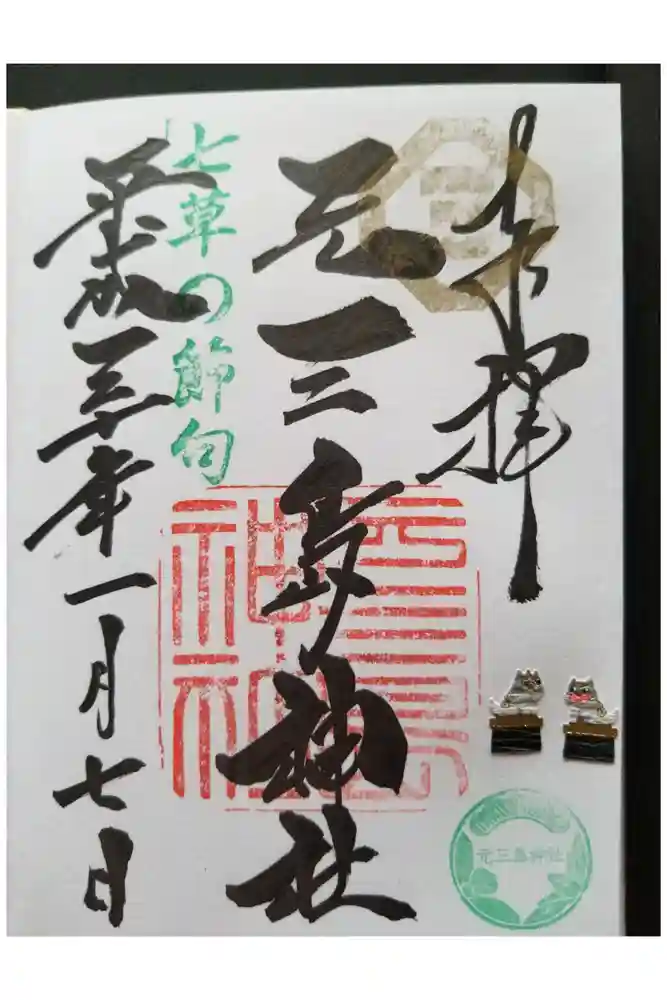 奉拝
元三島神社
七草の節句
平成三十年一月七日
元三島神社
元三島神社